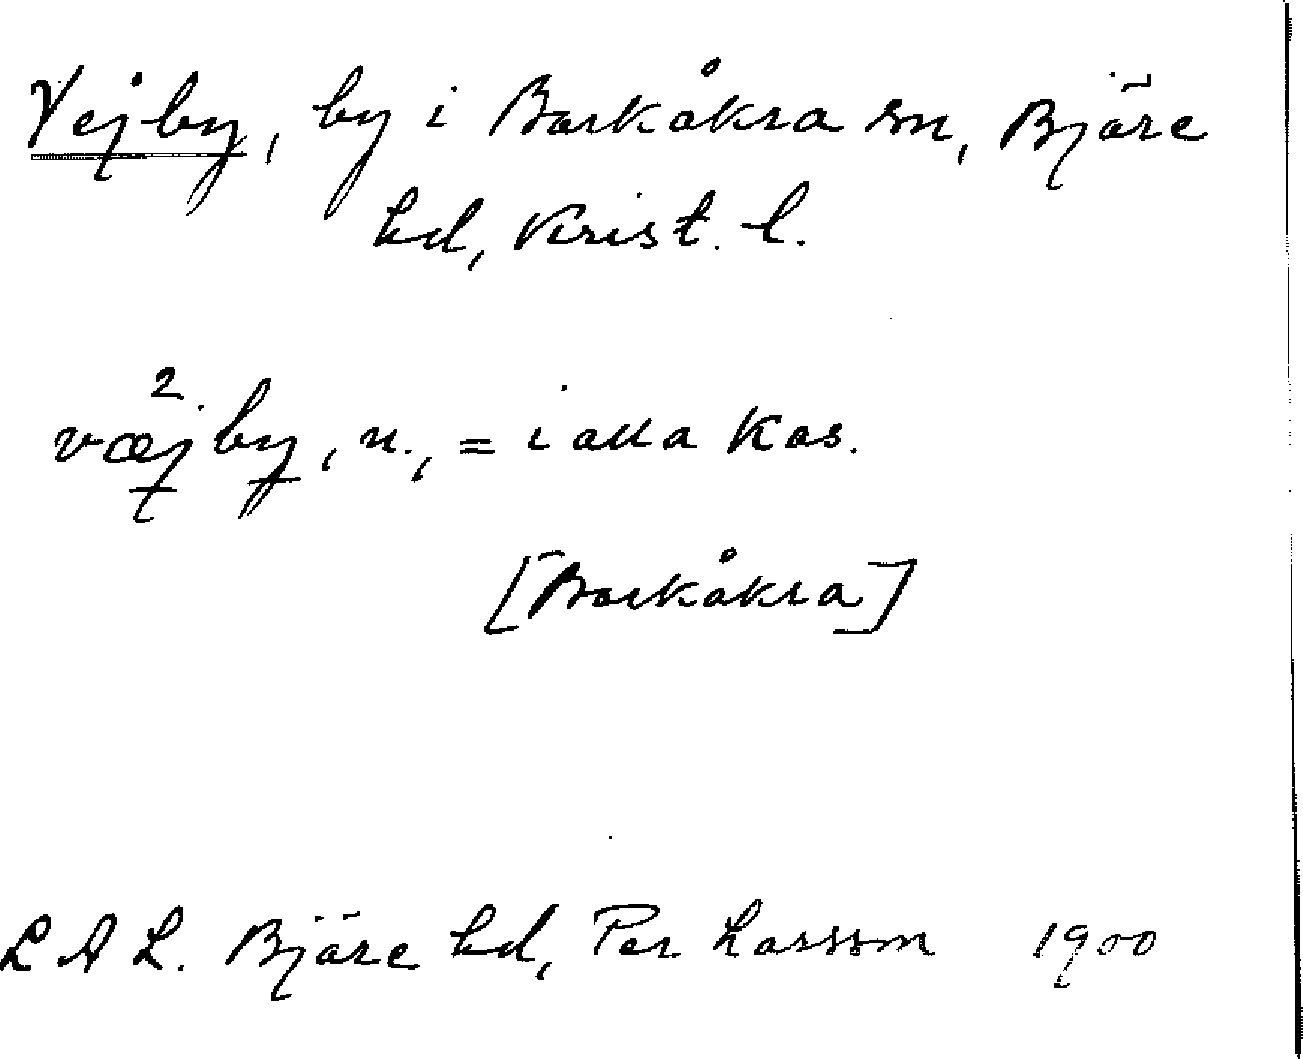 Vejby, by i Barkåkra sn, Bjäre
hd, Krist. l.
væ2jby, n., = i alla kas.
[Barkåkra]
LAL. Bjäre hd, Per Larsson 1900